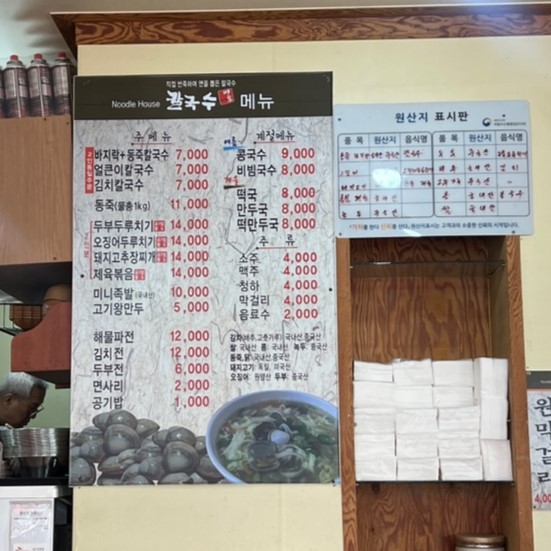 직접 반죽하여 면을 뽑은 칼국수
Noodle House 칼국수 메뉴
주 메뉴
바지락+동죽칼국수 7,000
얼큰이칼국수 7,000
김치칼국수 7,000
동죽(물총1kg) 11,000
두부두루치기 14,000
오징어두루치기 14,000
돼지고추장찌개 14,000
제육볶음 14,000
미니족발(국내산) 10,000
고기왕만두 5,000
해물파전 12,000
김치전 12,000
두부전 6,000
면사리 2,000
공기밥 1,000
계절메뉴
콩국수 9,000
비빔국수 8,000
떡국 8,000
만두국 8,000
떡만두국 8,000
주 류
소주 4,000
맥주 4,000
청하 4,000
막걸리 4,000
음료수 2,000
김치(배추,고춧가루) 국내산,중국산
쌀 국내산 콩 국내산 녹두 중국산
동죽,닭 국내산,중국산
돼지고기 독일, 미국산
오징어 원양산 두부 중국산
원산지 표시판
품목 원산지 음식명 품목 원산지 음식명
원막걸리